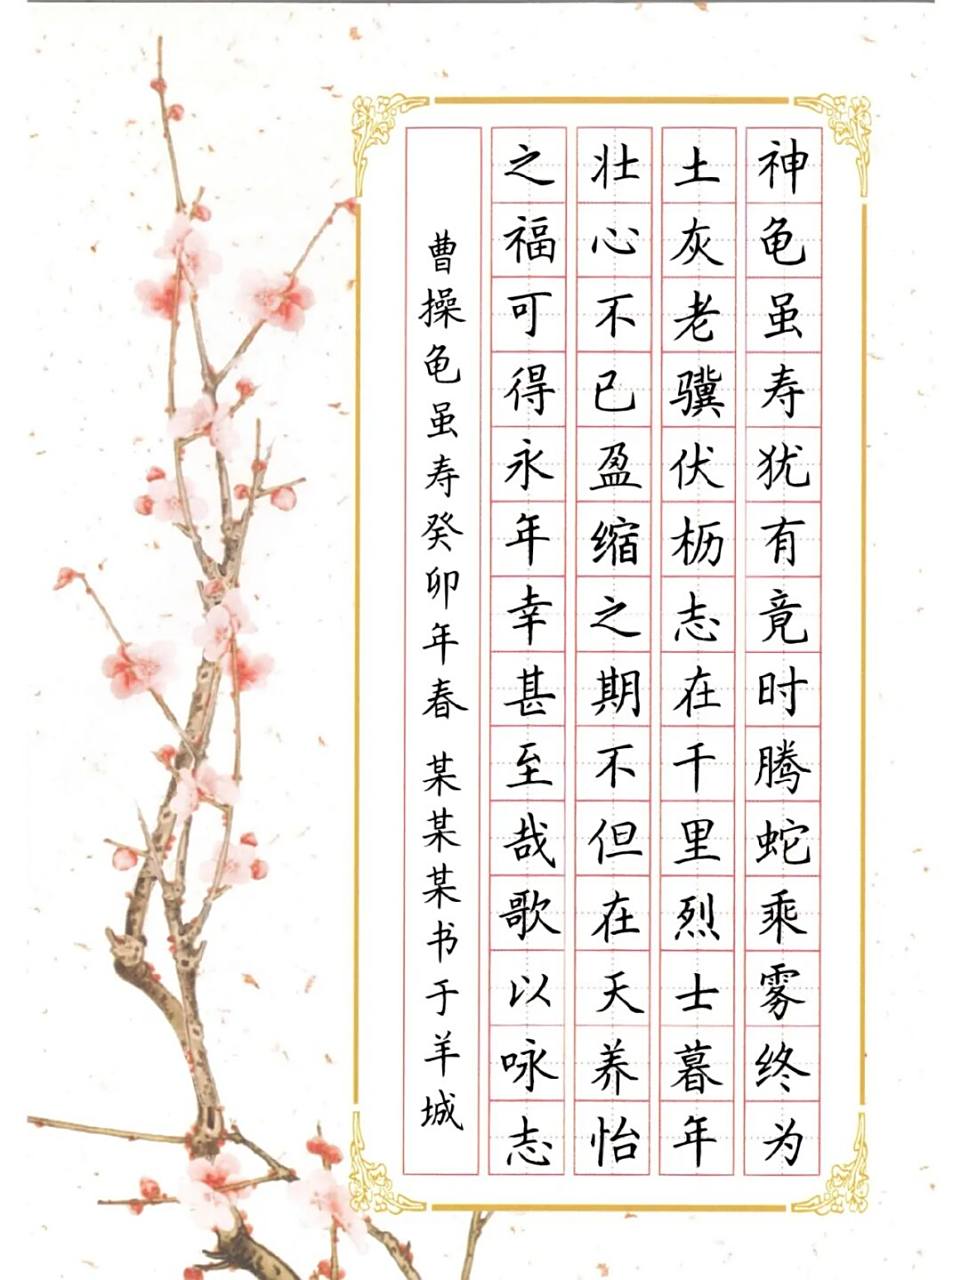 神龟虽寿犹有竟时腾蛇乘雾终为
土灰老骥伏枥志在千里烈士暮年
壮心不已盈缩之期不但在天养怡
之福可得永年幸甚至哉歌以咏志
曹操龟虽寿癸卯年春 某某某书于羊城